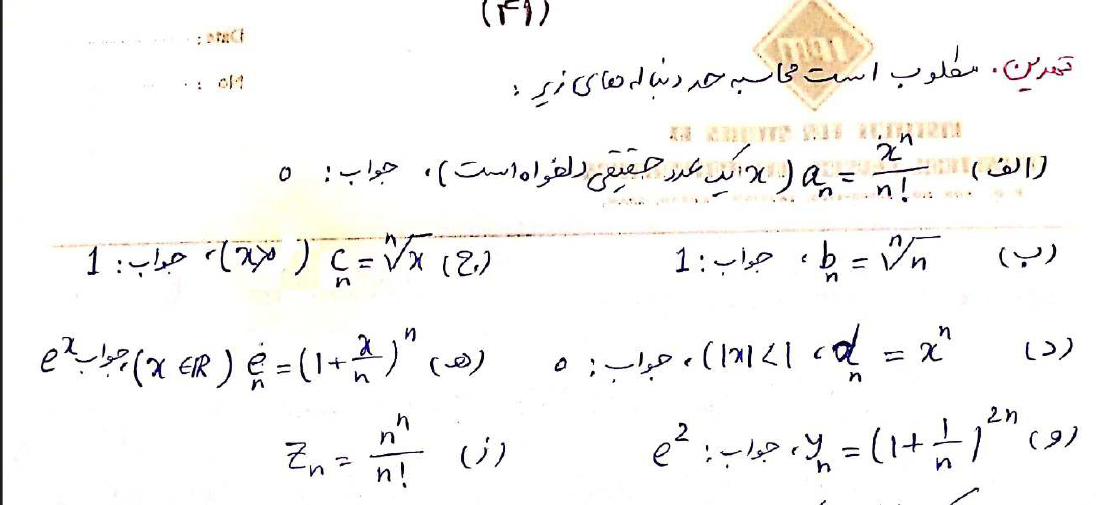 (۴۹)
تمرین. مطلوب است محاسبه حد دنباله های زیر :
الف) aₙ = xⁿ/n! (x یک عدد حقیقی دلخواه است)، جواب: ۰
ب) bₙ = ⁿ√n ، جواب: 1 ج) cₙ = ⁿ√x (x>0)، جواب: 1
د) dₙ = xⁿ ، |x|<1)، جواب: ۰ هـ) eₙ = (1+x/n)ⁿ (x∈ℝ)، جواب eˣ
و) yₙ = (1+1/n)²ⁿ ، جواب: e² ز) zₙ = nⁿ/n!